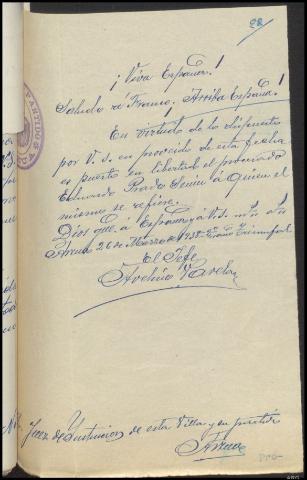 22
¡Viva España!
Saludo a Franco. ¡Arriba España!
En virtud de lo dispuesto
por V. S. en proveido de esta fecha
es puesto en libertad el procesado
Eduardo Prado á quien el
mismo se refiere.
Dios gue. á España y á V. S. m. a.
26 de Marzo de 1938 Año Triunfal
El Jefe
Avelino Varela
Juez de Instruccion de esta Villa y su partido
Arzua